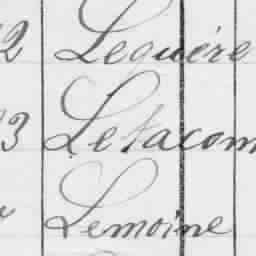 2 Leguére
3 Letacom
Lemoine